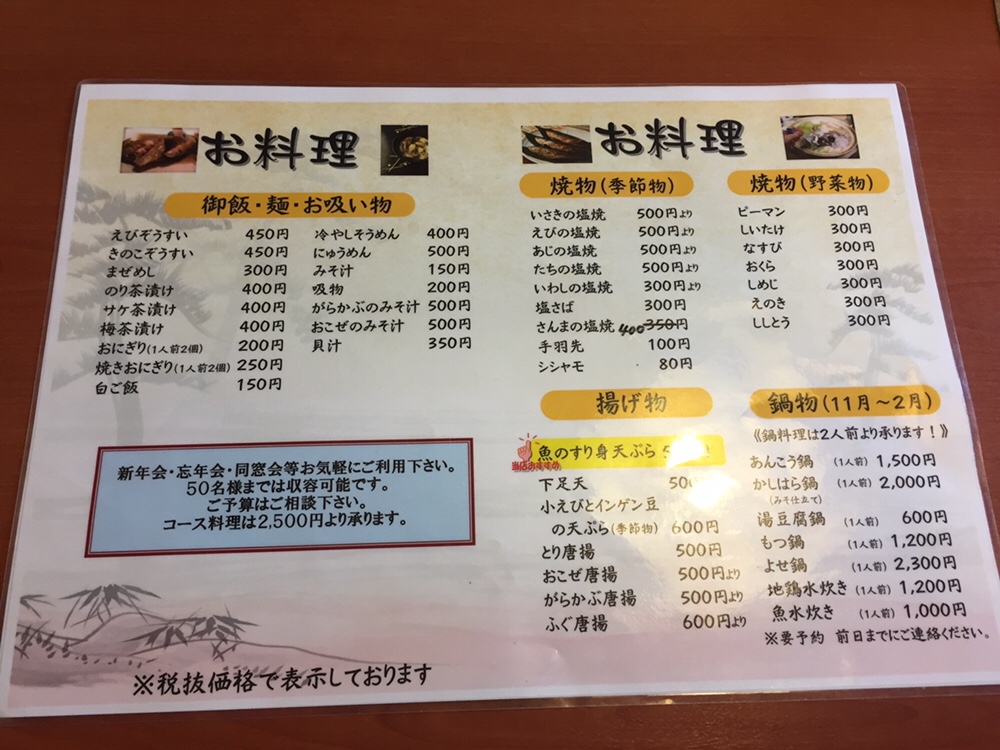 お料理
御飯・麺・お吸い物
えびぞうすい 450円
きのこぞうすい 450円
まぜめし 300円
のり茶漬け 400円
サケ茶漬け 400円
梅茶漬け 400円
おにぎり(1人前2個) 200円
焼きおにぎり(1人前2個) 250円
白ご飯 150円
冷やしそうめん 400円
にゅうめん 500円
みそ汁 150円
吸物 200円
がらかぶのみそ汁 500円
おこぜのみそ汁 500円
貝汁 350円
新年会・忘年会・同窓会等お気軽にご利用下さい。
50名様までは収容可能です。
ご予算はご相談下さい。
コース料理は2,500円より承ります。
※税抜価格で表示しております
お料理
焼物(季節物)
いさきの塩焼 500円より
えびの塩焼 500円より
あじの塩焼 500円より
たちの塩焼 500円より
いわしの塩焼 300円より
塩さば 300円
さんまの塩焼 400 350円
手羽先 100円
シシャモ 80円
焼物(野菜物)
ピーマン 300円
しいたけ 300円
なすび 300円
おくら 300円
しめじ 300円
えのき 300円
ししとう 300円
揚げ物
当店おすすめ
魚のすり身天ぷら
下足天
小えびとインゲン豆
の天ぷら(季節物) 600円
とり唐揚 500円
おこぜ唐揚 500円より
がらかぶ唐揚 500円より
ふぐ唐揚 600円より
鍋物(11月～2月)
《鍋料理は2人前より承ります！》
あんこう鍋 (1人前) 1,500円
かしはら鍋 (1人前) 2,000円
(みそ仕立て)
湯豆腐鍋 (1人前) 600円
もつ鍋 (1人前) 1,200円
よせ鍋 (1人前) 2,300円
地鶏水炊き (1人前) 1,200円
魚水炊き (1人前) 1,000円
※要予約 前日までにご連絡ください。